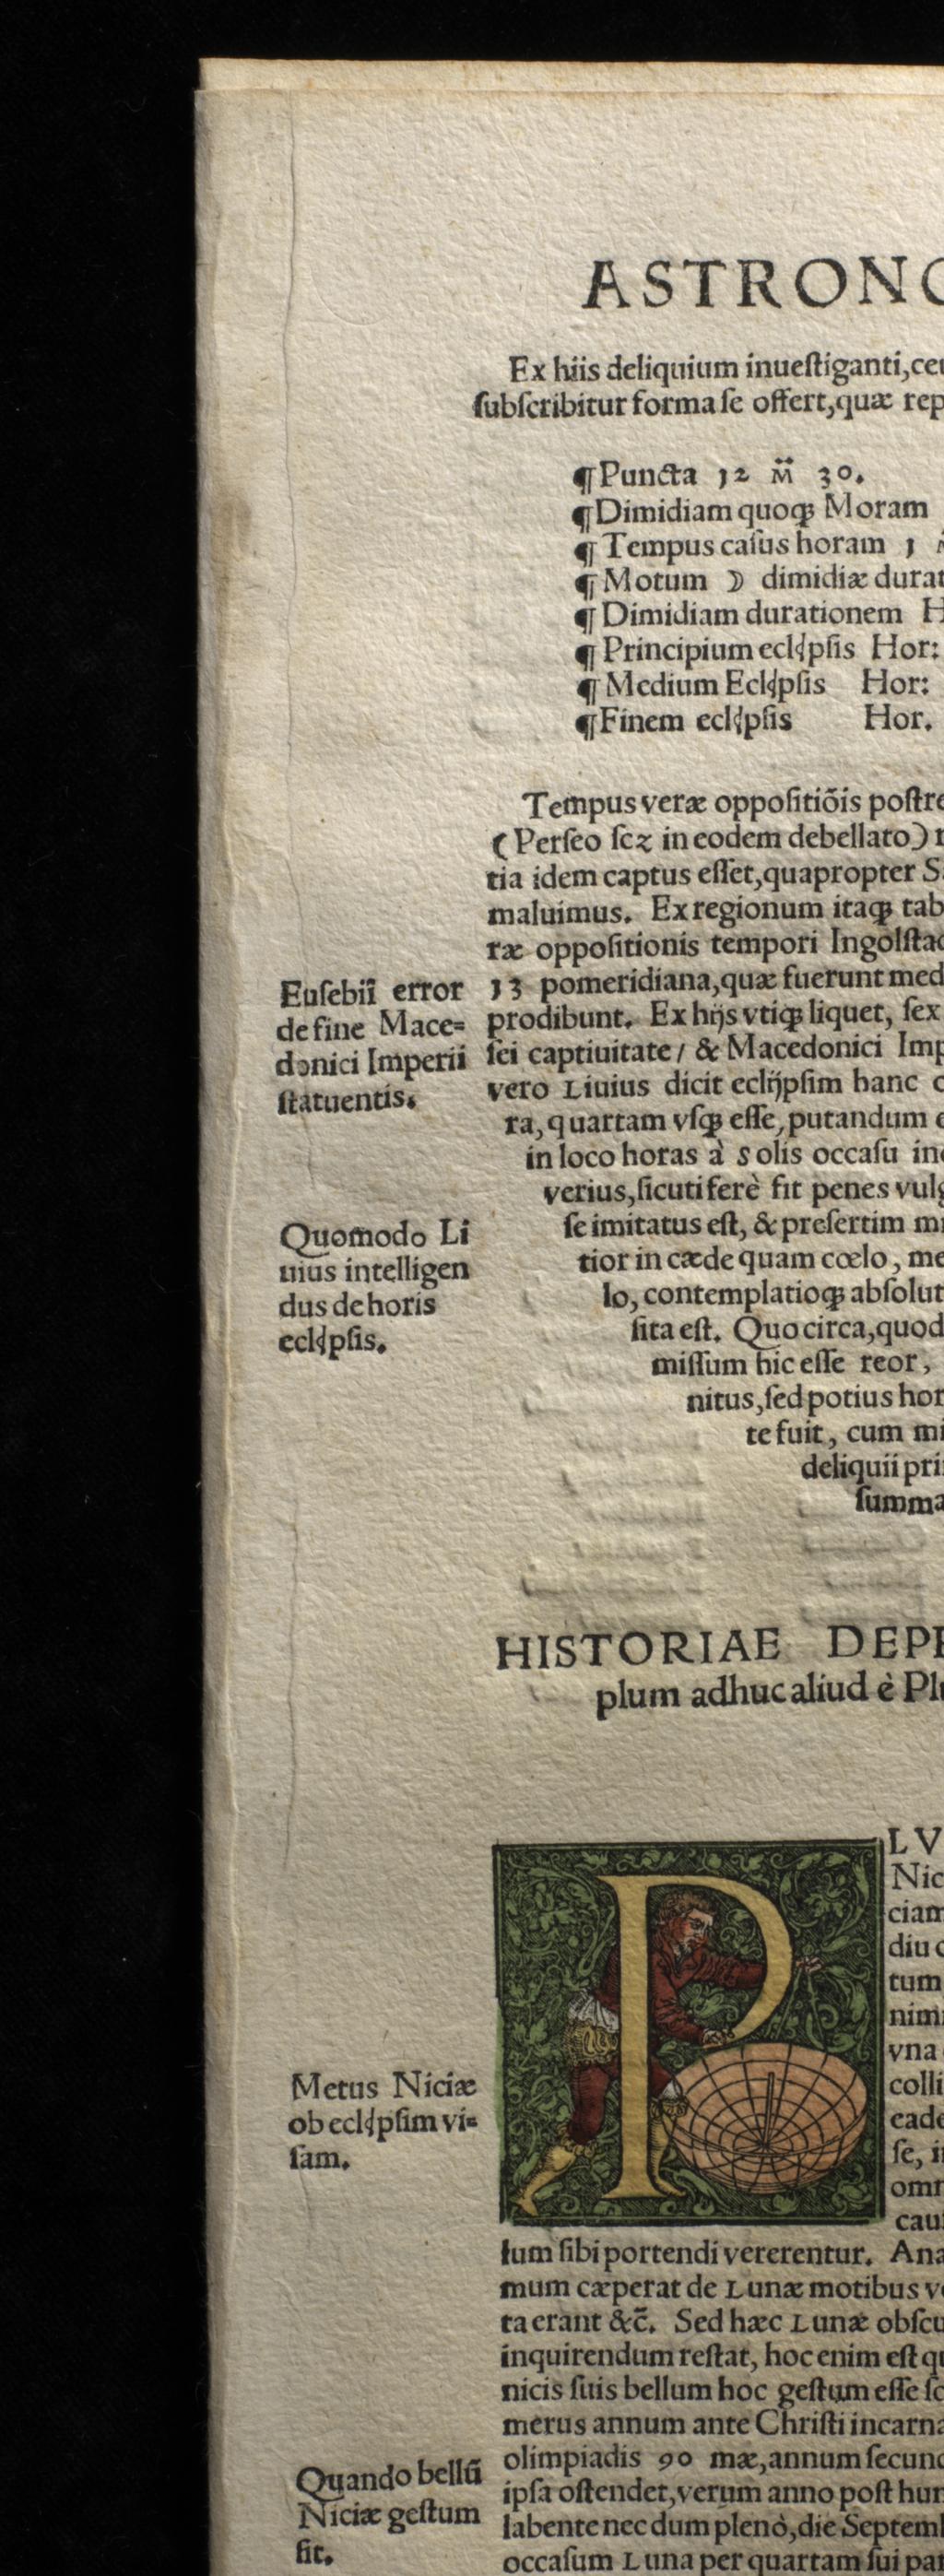 ASTRONO
Ex hiis deliquium inueſtiganti,ceu
ſubſcribitur forma ſe offert,quæ rep
¶ Puncta 12 M̈ 30.
¶ Dimidiam quoqꝫ Moram
¶ Tempus caſus horam 1
¶ Motum ☽ dimidiæ durat
¶ Dimidiam durationem H
¶ Principium eclꝗpſis Hor:
¶ Medium Eclꝗpſis Hor:
¶ Finem eclꝗpſis Hor.
Tempus veræ oppoſitiõis poſtre
(Perſeo ſcꝫ in eodem debellato) r
tia idem captus eſſet,quapropter S
maluimus. Ex regionum itaqꝫ tab
ræ oppoſitionis tempori Ingolſtad
13 pomeridiana,quæ fuerunt med
prodibunt. Ex hijs vtiqꝫ liquet, ſex
ſei captiuitate / & Macedonici Imp
vero Liuius dicit eclijpſim hanc
ra, quartam vſqꝫ eſſe,putandum e
in loco horas à Solis occaſu in
verius,ſicuti ferè fit penes vulg
ſe imitatus eſt, & preſertim m
tior in cæde quam cœlo, me
lo, contemplatioqꝫ abſolut
ſita eſt. Quocirca,quod
miſſum hic eſſe reor,
nitus,ſed potius hor
te fuit, cum mi
deliquii pri
ſumma
Euſebiī error
de fine Mace=
donici Imperii
ſtatuentis.
Quomodo Li
uius intelligen
dus de horis
eclꝗpſis.
HISTORIAE DEPE
plum adhuc aliud è Plu
PLV
Nic
ciam
diu
tum
nim
vna
colli
eade
ſe, i
omn
cau
lum ſibi portendi vererentur. Ana
mum cæperat de Lunæ motibus ve
ta erant &c̃. Sed hæc Lunæ obſcu
inquirendum reſtat, hoc enim eſt qu
nicis ſuis bellum hoc geſtum eſſe ſc
merus annum ante Chriſti incarna
olimpiadis 90 mæ,annum ſecund
ipſa oſtendet,verum anno poſt hun
labente nec dum plenò,die Septemb
occaſum Luna per quartam ſui par
Metus Niciæ
ob eclꝗpſim vi=
ſam.
Quando bellũ
Niciæ geſtum
ſit.